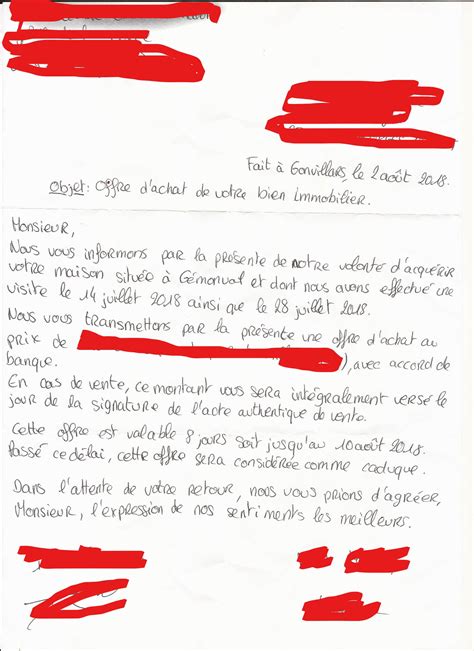 Fait à Gonvillars, le 2 août 2018.
Objet: Offre d'achat de votre bien Immobilier.
Monsieur,
Nous vous informons par la présente de notre volonté d'acquérir
votre maison située à Gémonval et dont nous avons effectué une
visite le 14 juillet 2018 ainsi que le 28 juillet 2018.
Nous vous transmettons par la présente une offre d'achat au
prix de ), avec accord de
banque.
En cas de vente, ce montant vous sera intégralement versé le
jour de la signature de l'acte authentique de vente.
Cette offre est valable 8 jours soit jusqu'au 10 août 2018.
Passé ce délai, cette offre sera considérée comme caduque.
Dans l'attente de votre retour, nous vous prions d'agréer,
Monsieur, l'expression de nos sentiments les meilleurs.